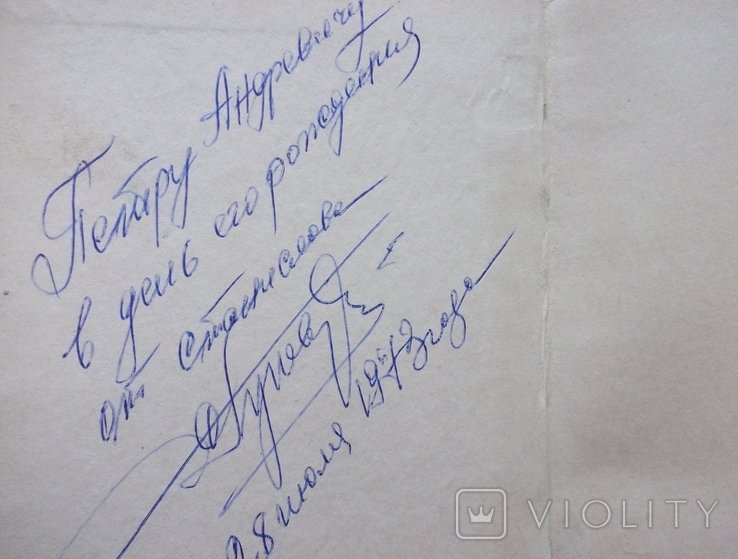 Петру Андреевичу
в день его рождения
от Станислава
28 июля 1973 года
VIOLITY